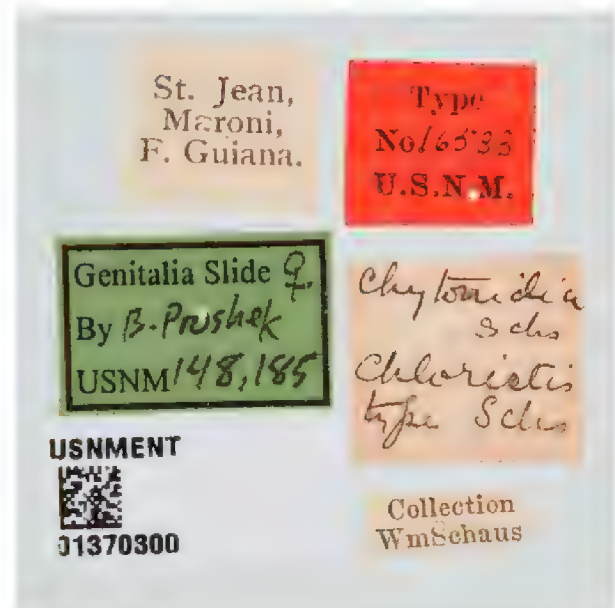 St. Jean,
Maroni,
F. Guiana.
Type
No 16533
U.S.N.M.
Genitalia Slide ♀
By B. Proshek
USNM 148,185
Chytonidia
Schs
Chloristis
type Schs
USNMENT
01370300
Collection
WmSchaus